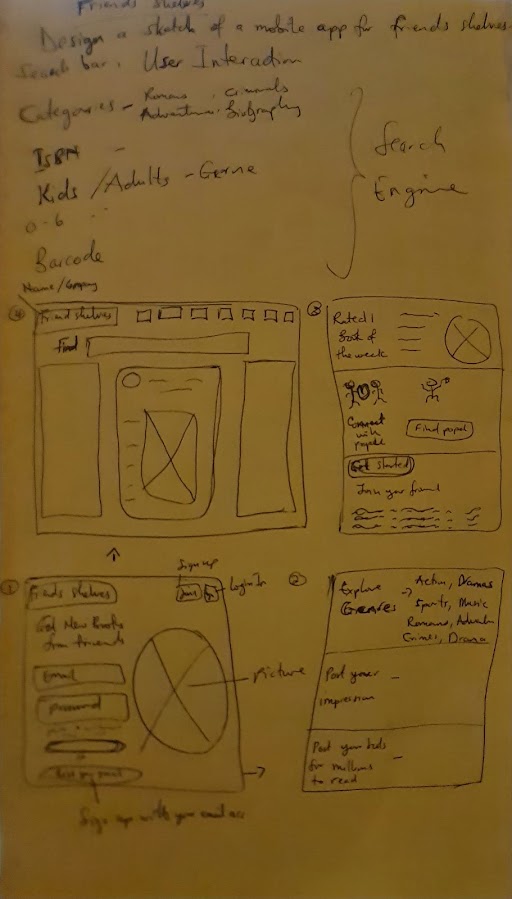 Friends shelves
Design a sketch of a mobile app for friends shelves.
Search bar, User Interaction
Categories - Romans, Criminals
Adventures, Biography
ISBN -
Kids / Adults - Genre
a-b
Barcode
Search
Engine
Name/
4 Friend shelves
Find
3 Rated 1
book of
the week
Connect
with
people
Find
Get started
Join your friend
1 Friends shelves
Sign up
Login In
Get New Books
from friends
Email
Password
Picture
Sign up with your email acc
2 Explore
Genres
Action, Dramas
Sports, Music
Romans,
Crimes, Drama
Post your
impression
Post your
for millions
to read